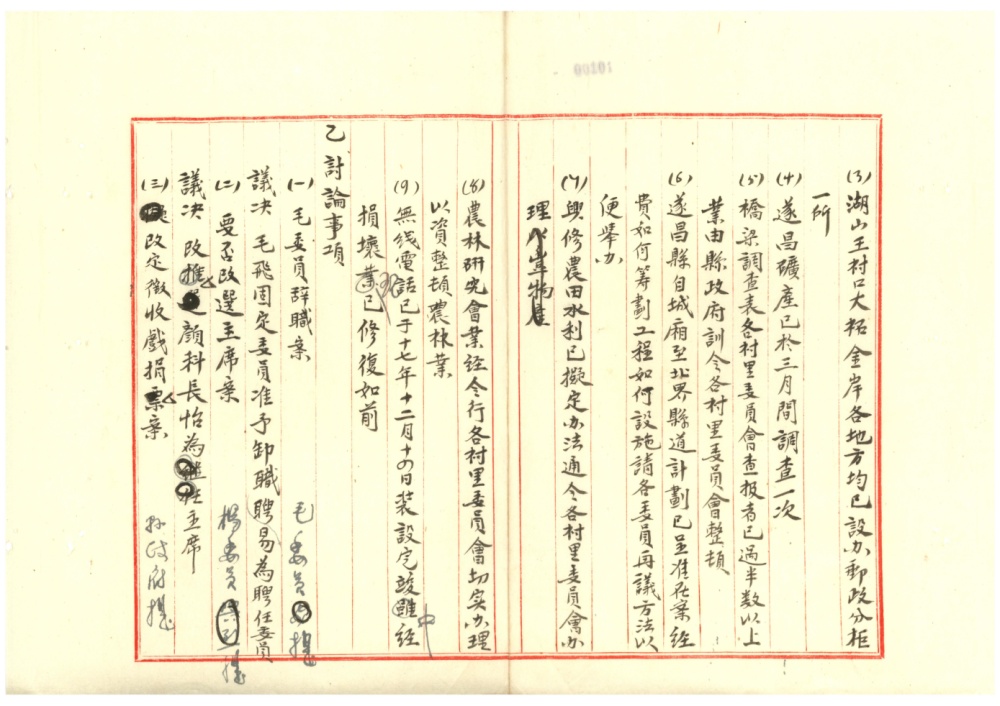 00101
(3)湖山王村口大柘金岸各地方均已設办郵政分柜
一所
(4)遂昌礦産已於三月間調查一次
(5)橋梁調查表各村里委員會查报者已過半数以上
業由縣政府訓令各村里委員會整頓
(6)遂昌縣自城廂至北界縣道計劃已呈准在案經
費如何筹劃工程如何設施請各委員再議方法以
便举办
(7)興修農田水利已擬定办法通令各村里委員會办
理
(8)農林研究會業经令行各村里委員會切实办理
以資整頓農林業
(9)無线電話已于十七年十二月十四日装設完竣雖经
損壞業已修復如前
乙討論事項
(一)毛委員辞職案 毛委員提
議决 毛飛固定委員准予卸職聘易為聘任委員
(二)要否改選主席案 楊委員提
議决 改推顏科長怡為主席
(三)改定徵收戲捐案 孙政府提